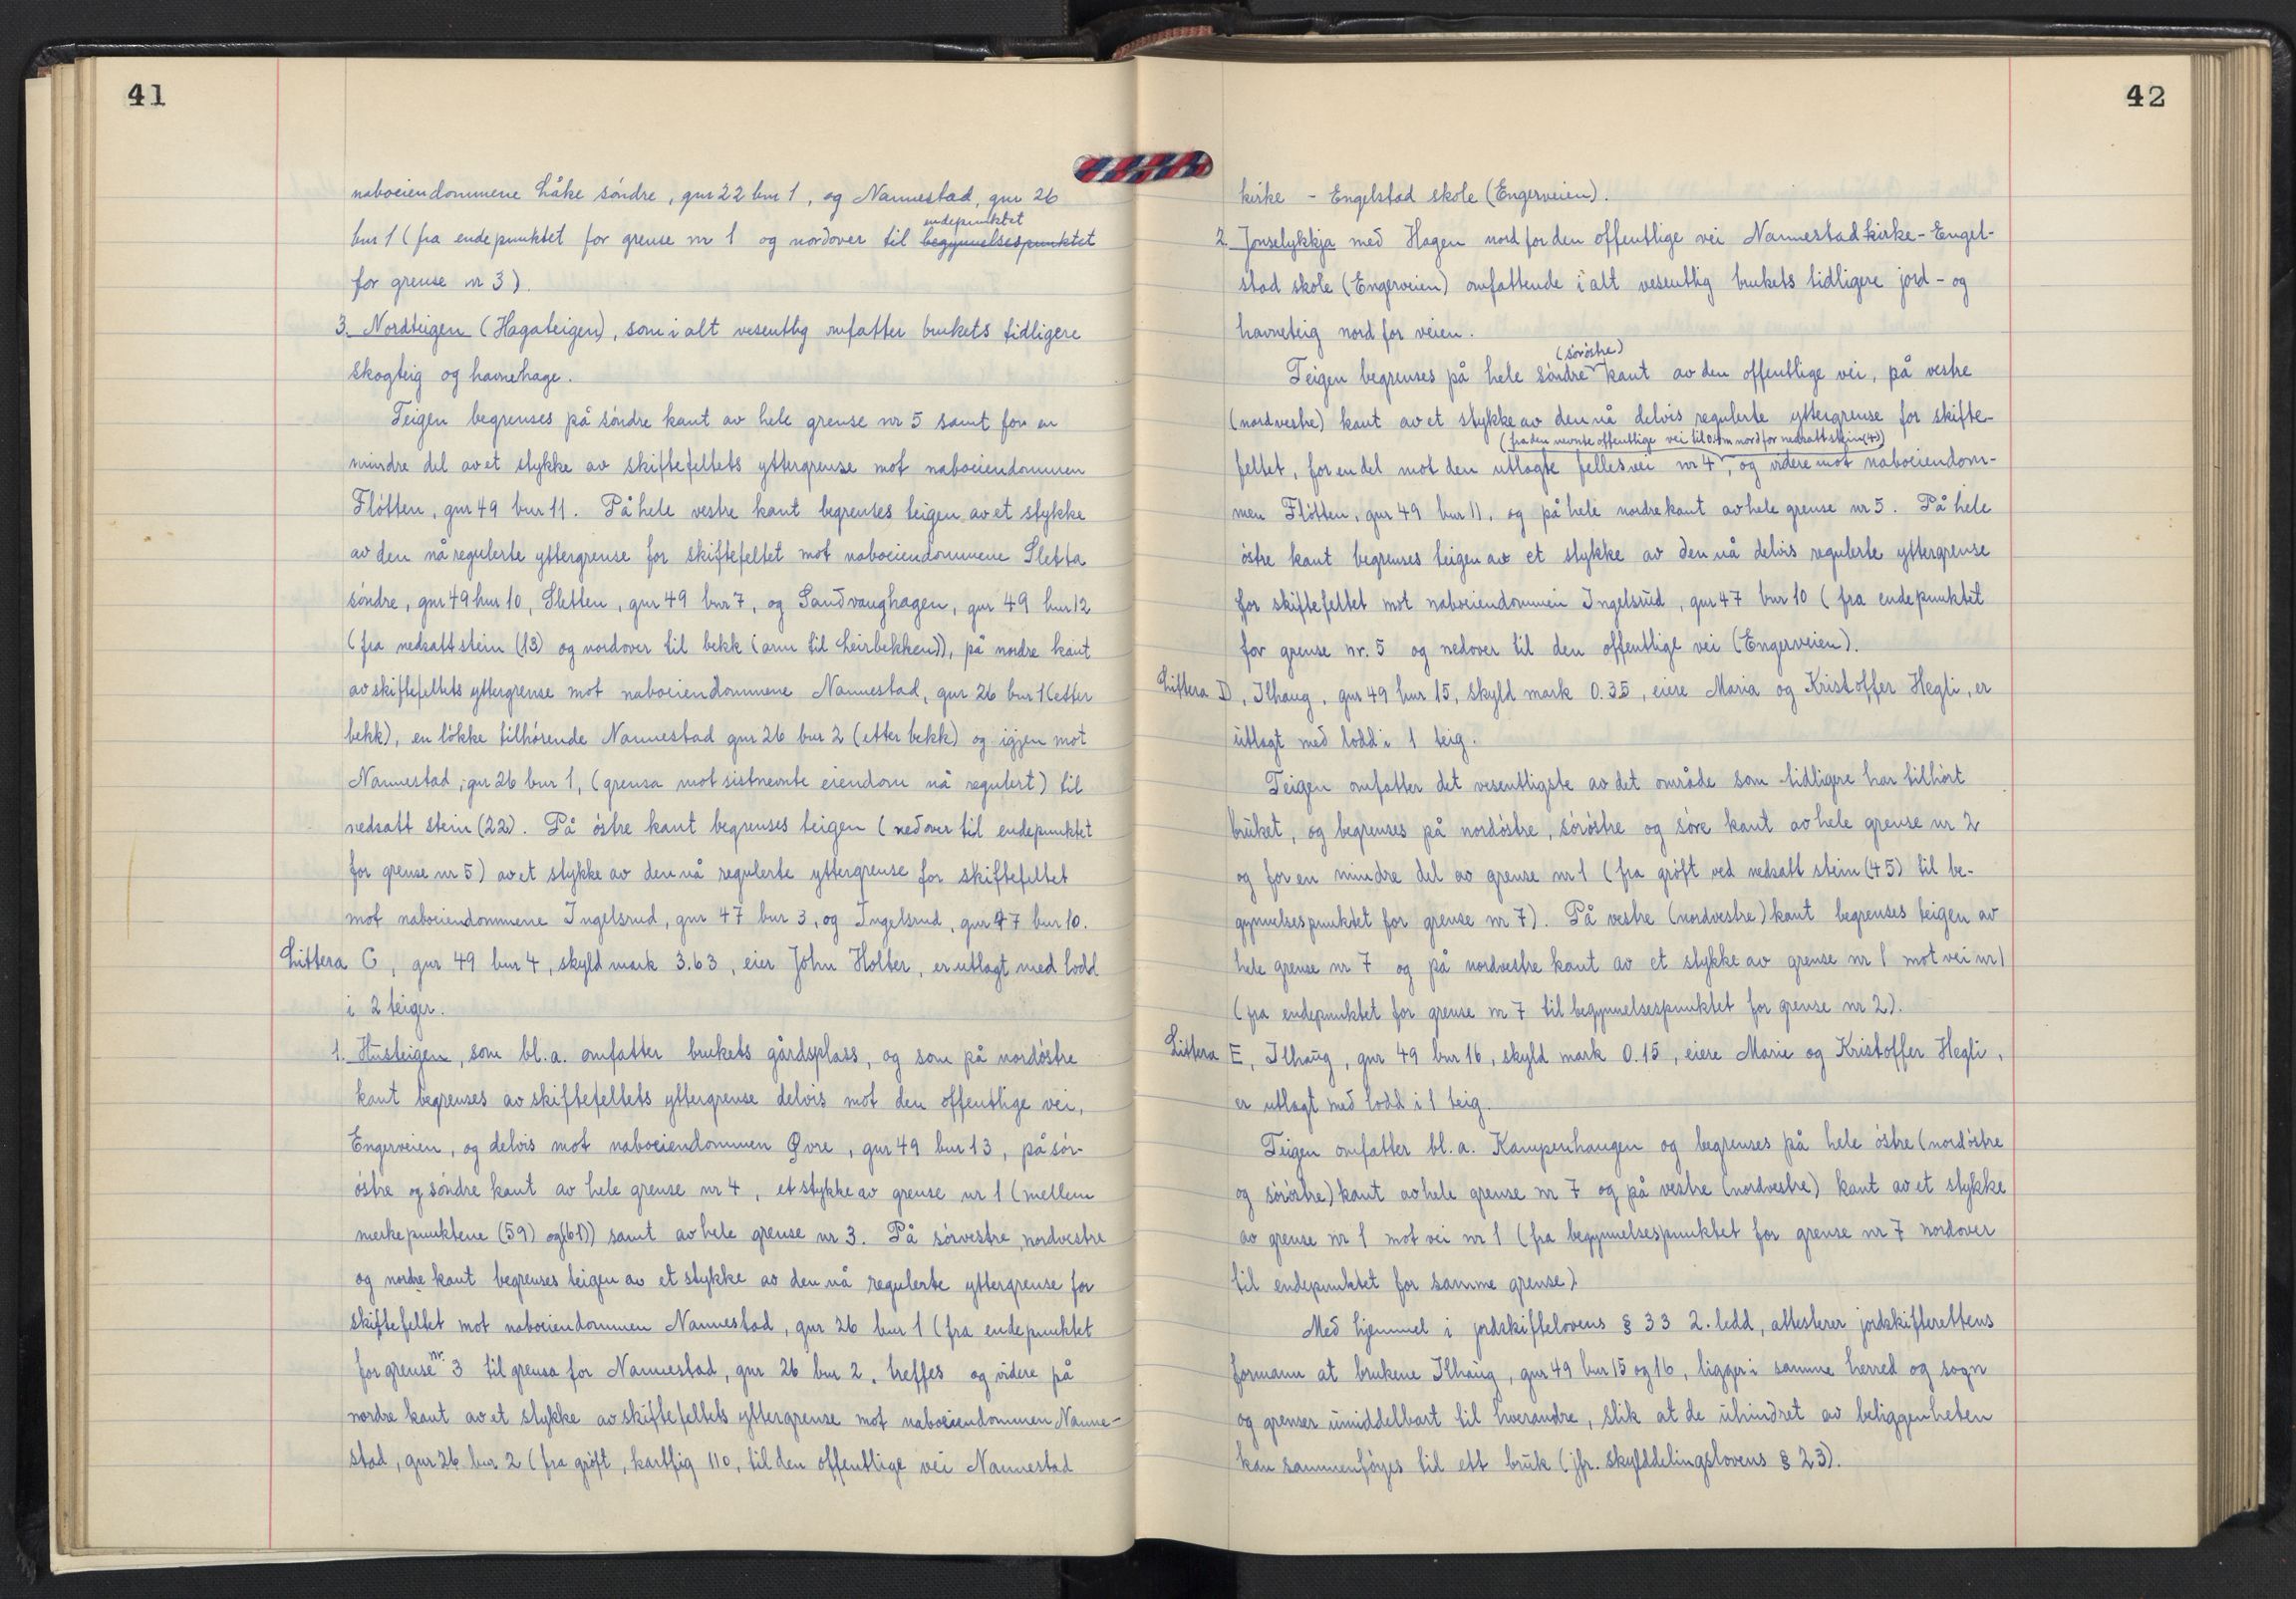 41
naboeiendommene Låke söndre, gnr 22 bnr 1, og Nannestad, gnr 26
endepunktet
bnr 1 (fra endepunktet for grense nr 1 og nordover til begynnelsespunktet
for grense nr 3).
3. Nordteigen (Hagateigen), som i alt vesentlig omfatter brukets tidligere
skogteig og havnehage.
Teigen begrenses på söndre kant av hele grense nr 5 samt for en
mindre del av et stykke av skiftefeltets yttergrense mot naboeiendommen
Flötten, gnr 49 bnr 11. På hele vestre kant begrenses teigen av et stykke
av den nå regulerte yttergrense for skiftefeltet mot naboeiendommene Sletta
söndre, gnr 49 bnr 10, Sletten, gnr 49 bnr 7, og Sandvanghagen, gnr 49 bnr 12
(fra nedsatt stein (13) og nordover til bekk (arm til Leirbekken)), på nordre kant
av skiftefeltets yttergrense mot naboeiendommene Nannestad, gnr 26 bnr 1 (etter
bekk), en lökke tilhörende Nannestad gnr 26 bnr 2 (etter bekk) og igjen mot
Nannestad, gnr 26 bnr 1, (grensa mot sistnevnte eiendom nå regulert) til
nedsatt stein (22). På östre kant begrenses teigen (nedover til endepunktet
for grense nr 5) av et stykke av den nå regulerte yttergrense for skiftefeltet
mot naboeiendommene Ingelsrud, gnr 47 bnr 3, og Ingelsrud, gnr 47 bnr 10.
Littera C, gnr 49 bnr 4, skyld mark 3.63, eier John Holter, er utlagt med lodd
i 2 teiger.
1. Husteigen, som bl.a. omfatter brukets gårdsplass, og som på nordöstre
kant begrenses av skiftefeltets yttergrense delvis mot den offentlige vei,
Engerveien, og delvis mot naboeiendommen Øvre, gnr 49 bnr 13, på sör-
östre og söndre kant av hele grense nr 4, et stykke av grense nr 1 (mellem
merkepunktene (59) og (61)) samt av hele grense nr 3. På sörvestre, nordvestre
og nordre kant begrenses teigen av et stykke av den nå regulerte yttergrense for
skiftefeltet mot naboeiendommen Nannestad, gnr 26 bnr 1 (fra endepunktet
for grense nr. 3 til grensa for Nannestad, gnr 26 bnr 2, treffes og videre på
nordre kant av et stykke av skiftefeltets yttergrense mot naboeiendommen Nanne-
stad, gnr 26 bnr 2 (fra gröft, kartfig 110, til den offentlige vei Nannestad
42
kirke - Engelstad skole (Engerveien).
2. Jonselykkja med Hagen nord for den offentlige vei Nannestad kirke - Engel-
stad skole (Engerveien) omfattende i alt vesentlig brukets tidligere jord- og
havneteig nord for veien.
(söröstre)
Teigen begrenses på hele söndre kant av den offentlige vei, på vestre
(nordvestre) kant av et stykke av den nå delvis regulerte yttergrense for skifte-
(fra den nevnte offentlige vei til 0.4m nord for nedsatt stein (4))
feltet, for en del mot den utlagte fellesvei nr 4, og videre mot naboeiendom-
men Flötten, gnr 49 bnr 11, og på hele nordre kant av hele grense nr 5. På hele
östre kant begrenses teigen av et stykke av den nå delvis regulerte yttergrense
for skiftefeltet mot naboeiendommen Ingelsrud, gnr 47 bnr 10 (fra endepunktet
for grense nr. 5 og nedover til den offentlige vei (Engerveien).
Littera D, Ilhaug, gnr 49 bnr 15, skyld mark 0.35, eiere Maria og Kristoffer Hegli, er
utlagt med lodd i 1 teig.
Teigen omfatter det vesentligste av det område som tidligere har tilhört
bruket, og begrenses på nordöstre, söröstre og söre kant av hele grense nr 2
og for en mindre del av grense nr 1 (fra gröft ved nedsatt stein (45) til be-
gynnelsespunktet for grense nr 7). På vestre (nordvestre) kant begrenses teigen av
hele grense nr 7 og på nordvestre kant av et stykke av grense nr 1 mot vei nr 1
(fra endepunktet for grense nr 7 til begynnelsespunktet for grense nr 2).
Littera E, Ilhaug, gnr 49 bnr 16, skyld mark 0.15, eiere Marie og Kristoffer Hegli,
er utlagt med lodd i 1 teig.
Teigen omfatter bl.a. Kampenhaugen og begrenses på hele östre (nordöstre
og söröstre) kant av hele grense nr 7 og på vestre (nordvestre) kant av et stykke
av grense nr 1 mot vei nr 1 (fra begynnelsespunktet for grense nr 7 nordover
til endepunktet for samme grense)
Med hjemmel i jordskiftelovens § 33 2. ledd, attesterer jordskifterettens
formann at brukene Ilhaug, gnr 49 bnr 15 og 16, ligger i samme herred og sogn
og grenser umiddelbart til hverandre, slik at de uhindret av beliggenheten
kan sammenföyes til ett bruk (jfr. skylddelingslovens § 23).